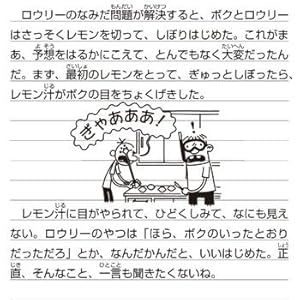 ロウリーのなみだ問題が解決すると、ボクとロウリー
はさっそくレモンを切って、しぼりはじめた。これがま
あ、予想をはるかにこえて、とんでもなく大変だったん
だ。まず、最初のレモンをとって、ぎゅっとしぼったら、
レモン汁がボクの目をちょくげきした。
きゃあああ!
レモン汁に目がやられて、ひどくしみて、なにも見え
ない。ロウリーのやつは「ほら、ボクのいったとおり
だっただろ」とか、なんだかんだと、いいはじめた。正
直、そんなこと、一言も聞きたくないね。